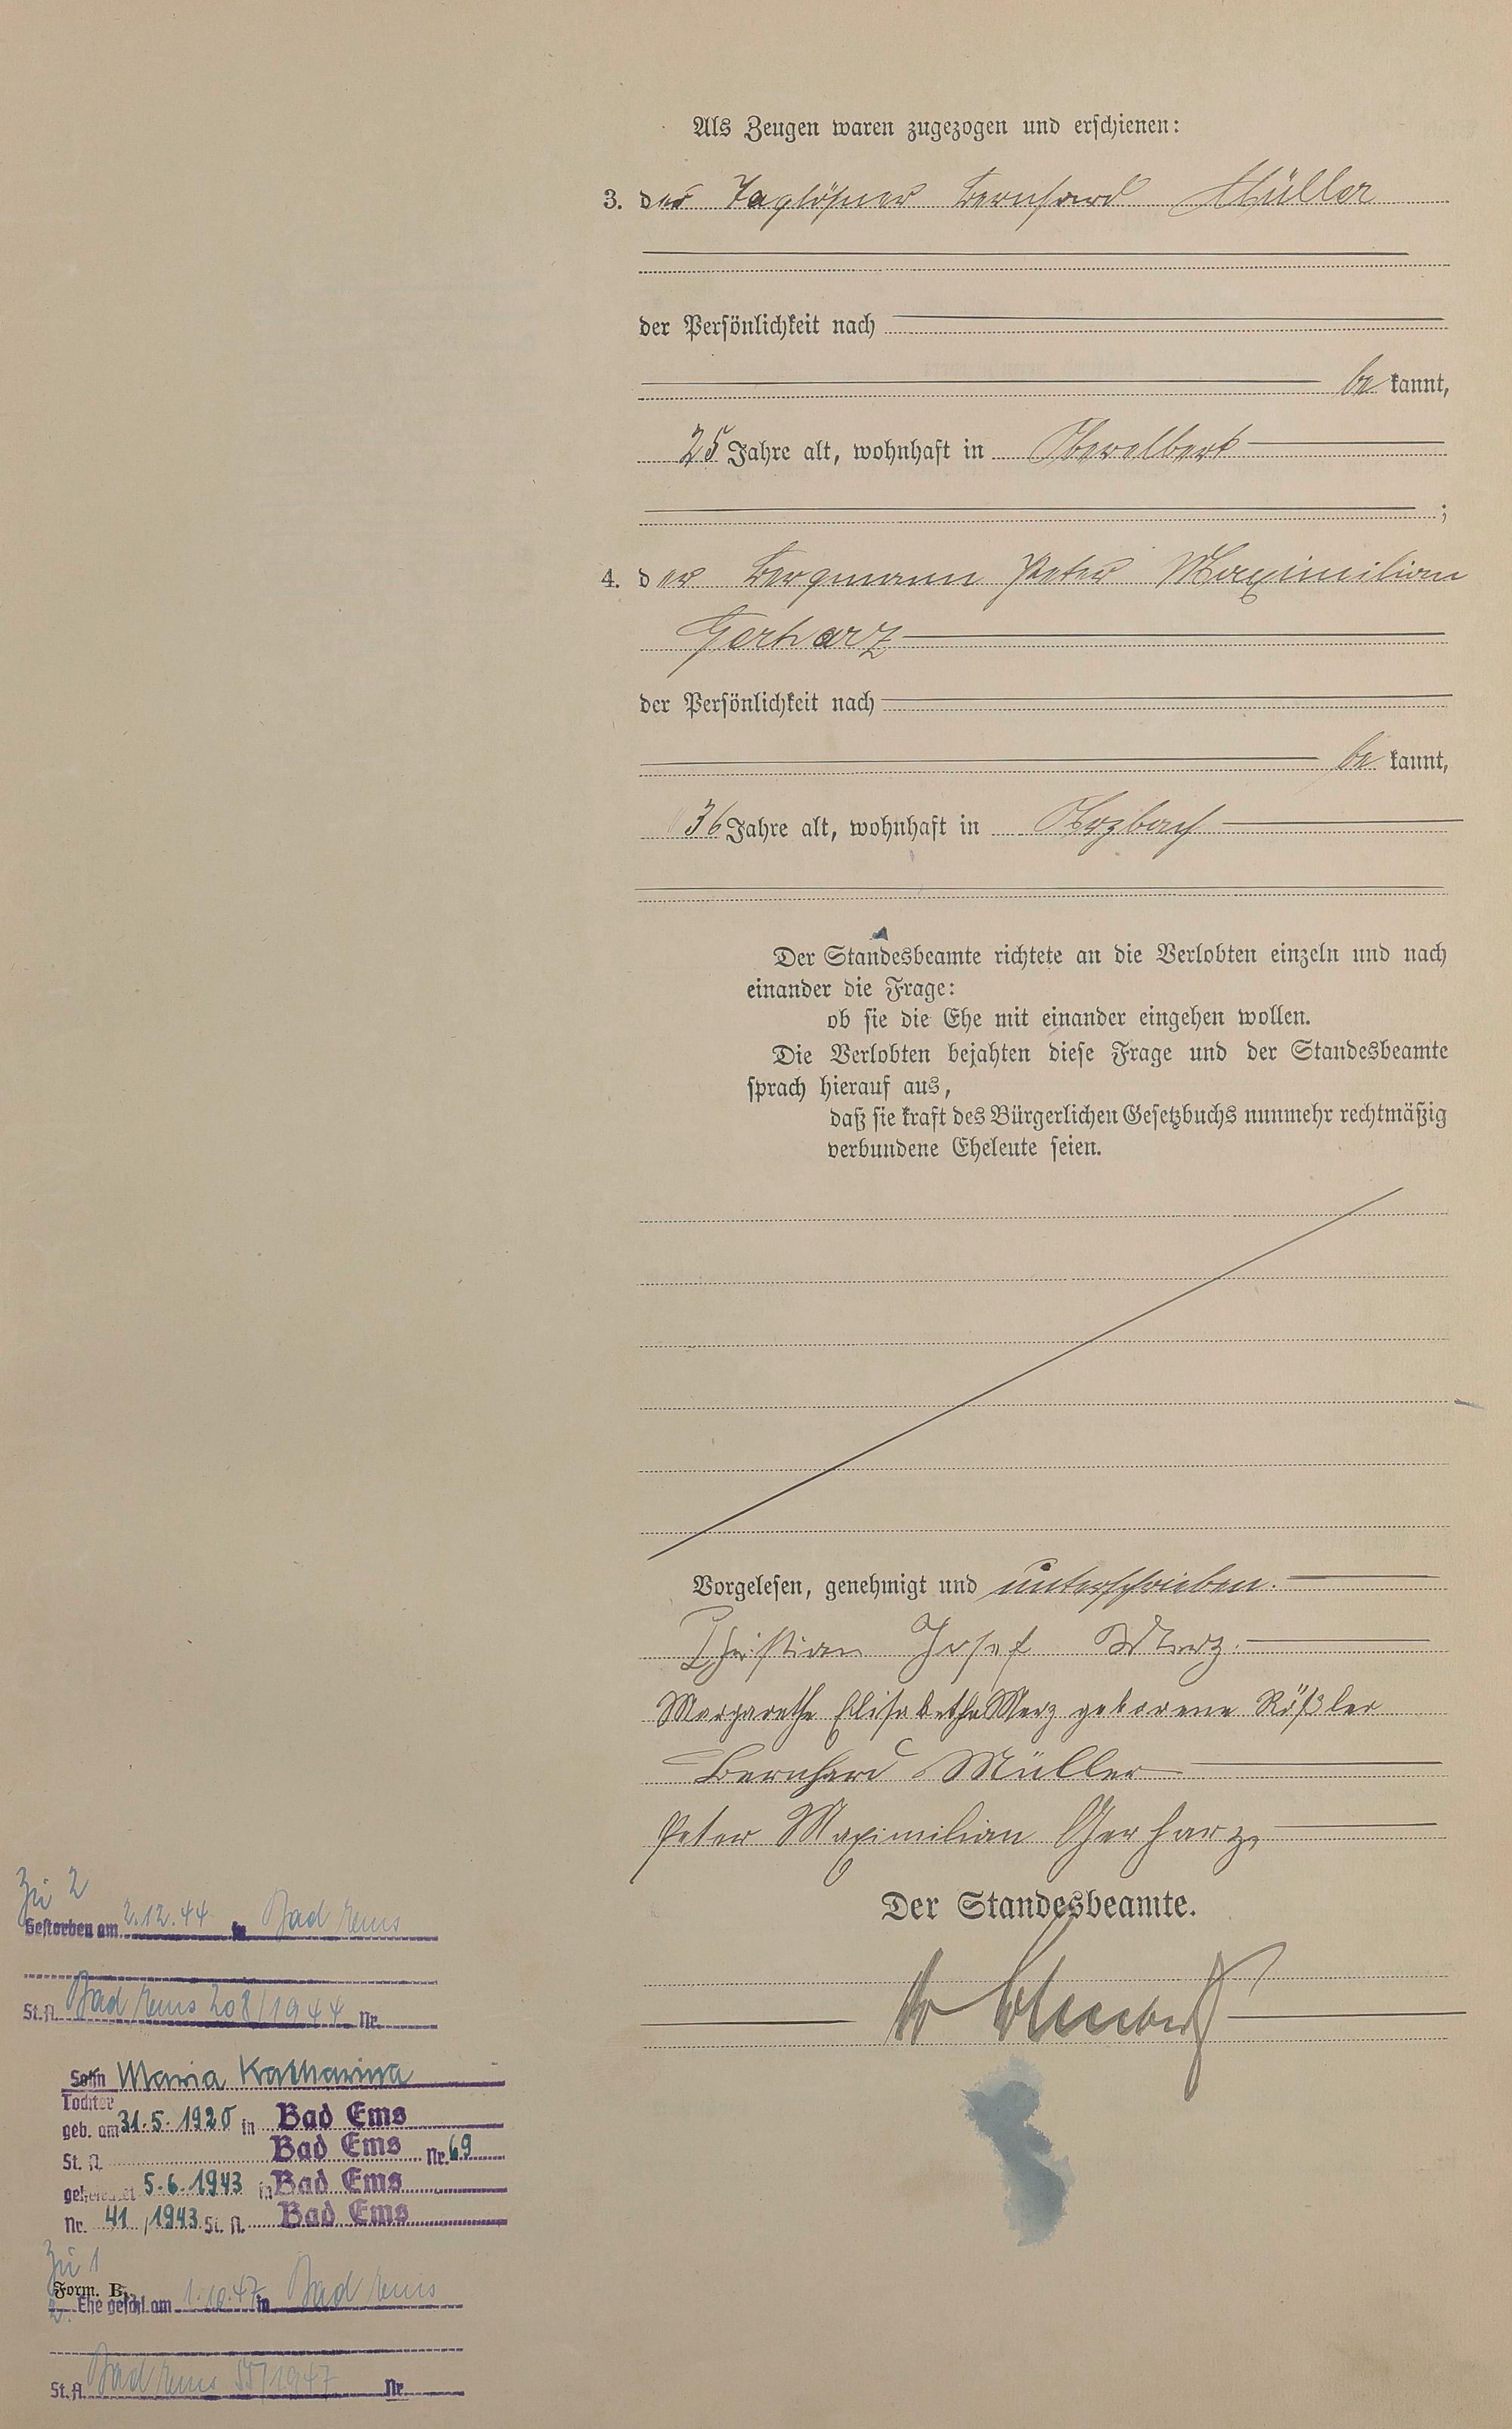 Als Zeugen waren zugezogen und erschienen:
3. der Taglöhner Bernhard Müller
der Persönlichkeit nach
be kannt,
25 Jahre alt, wohnhaft in Oberelbert
;
4. der Bergmann Peter Maximilian
Gerharz
der Persönlichkeit nach
be kannt,
36 Jahre alt, wohnhaft in Arzbach
Der Standesbeamte richtete an die Verlobten einzeln und nach
einander die Frage:
ob sie die Ehe mit einander eingehen wollen.
Die Verlobten bejahten diese Frage und der Standesbeamte
sprach hierauf aus,
daß sie kraft des Bürgerlichen Gesetzbuchs nunmehr rechtmäßig
verbundene Eheleute seien.
Vorgelesen, genehmigt und unterschrieben.
Christian Josef Merz.
Margarethe Elisabetha Merz geborene Rößler
Bernhard Müller
Peter Maximilian Gerharz,
Der Standesbeamte.
Zu 2
Gestorben am 2.12.44 in Bad Ems
St.A. Bad Ems 208/1944 Nr.
Sohn Maria Katharina
Tochter
geb. am 31.5.1920 in Bad Ems
St. A. Bad Ems Nr. 69
geheiratet 5.6.1943 in Bad Ems
Nr. 41/1943 St. A. Bad Ems
Zu 1
Form. B.
2. Ehe geschl. am 1.10.47 in Bad Ems
St.A. Bad Ems 55/1947 Nr.